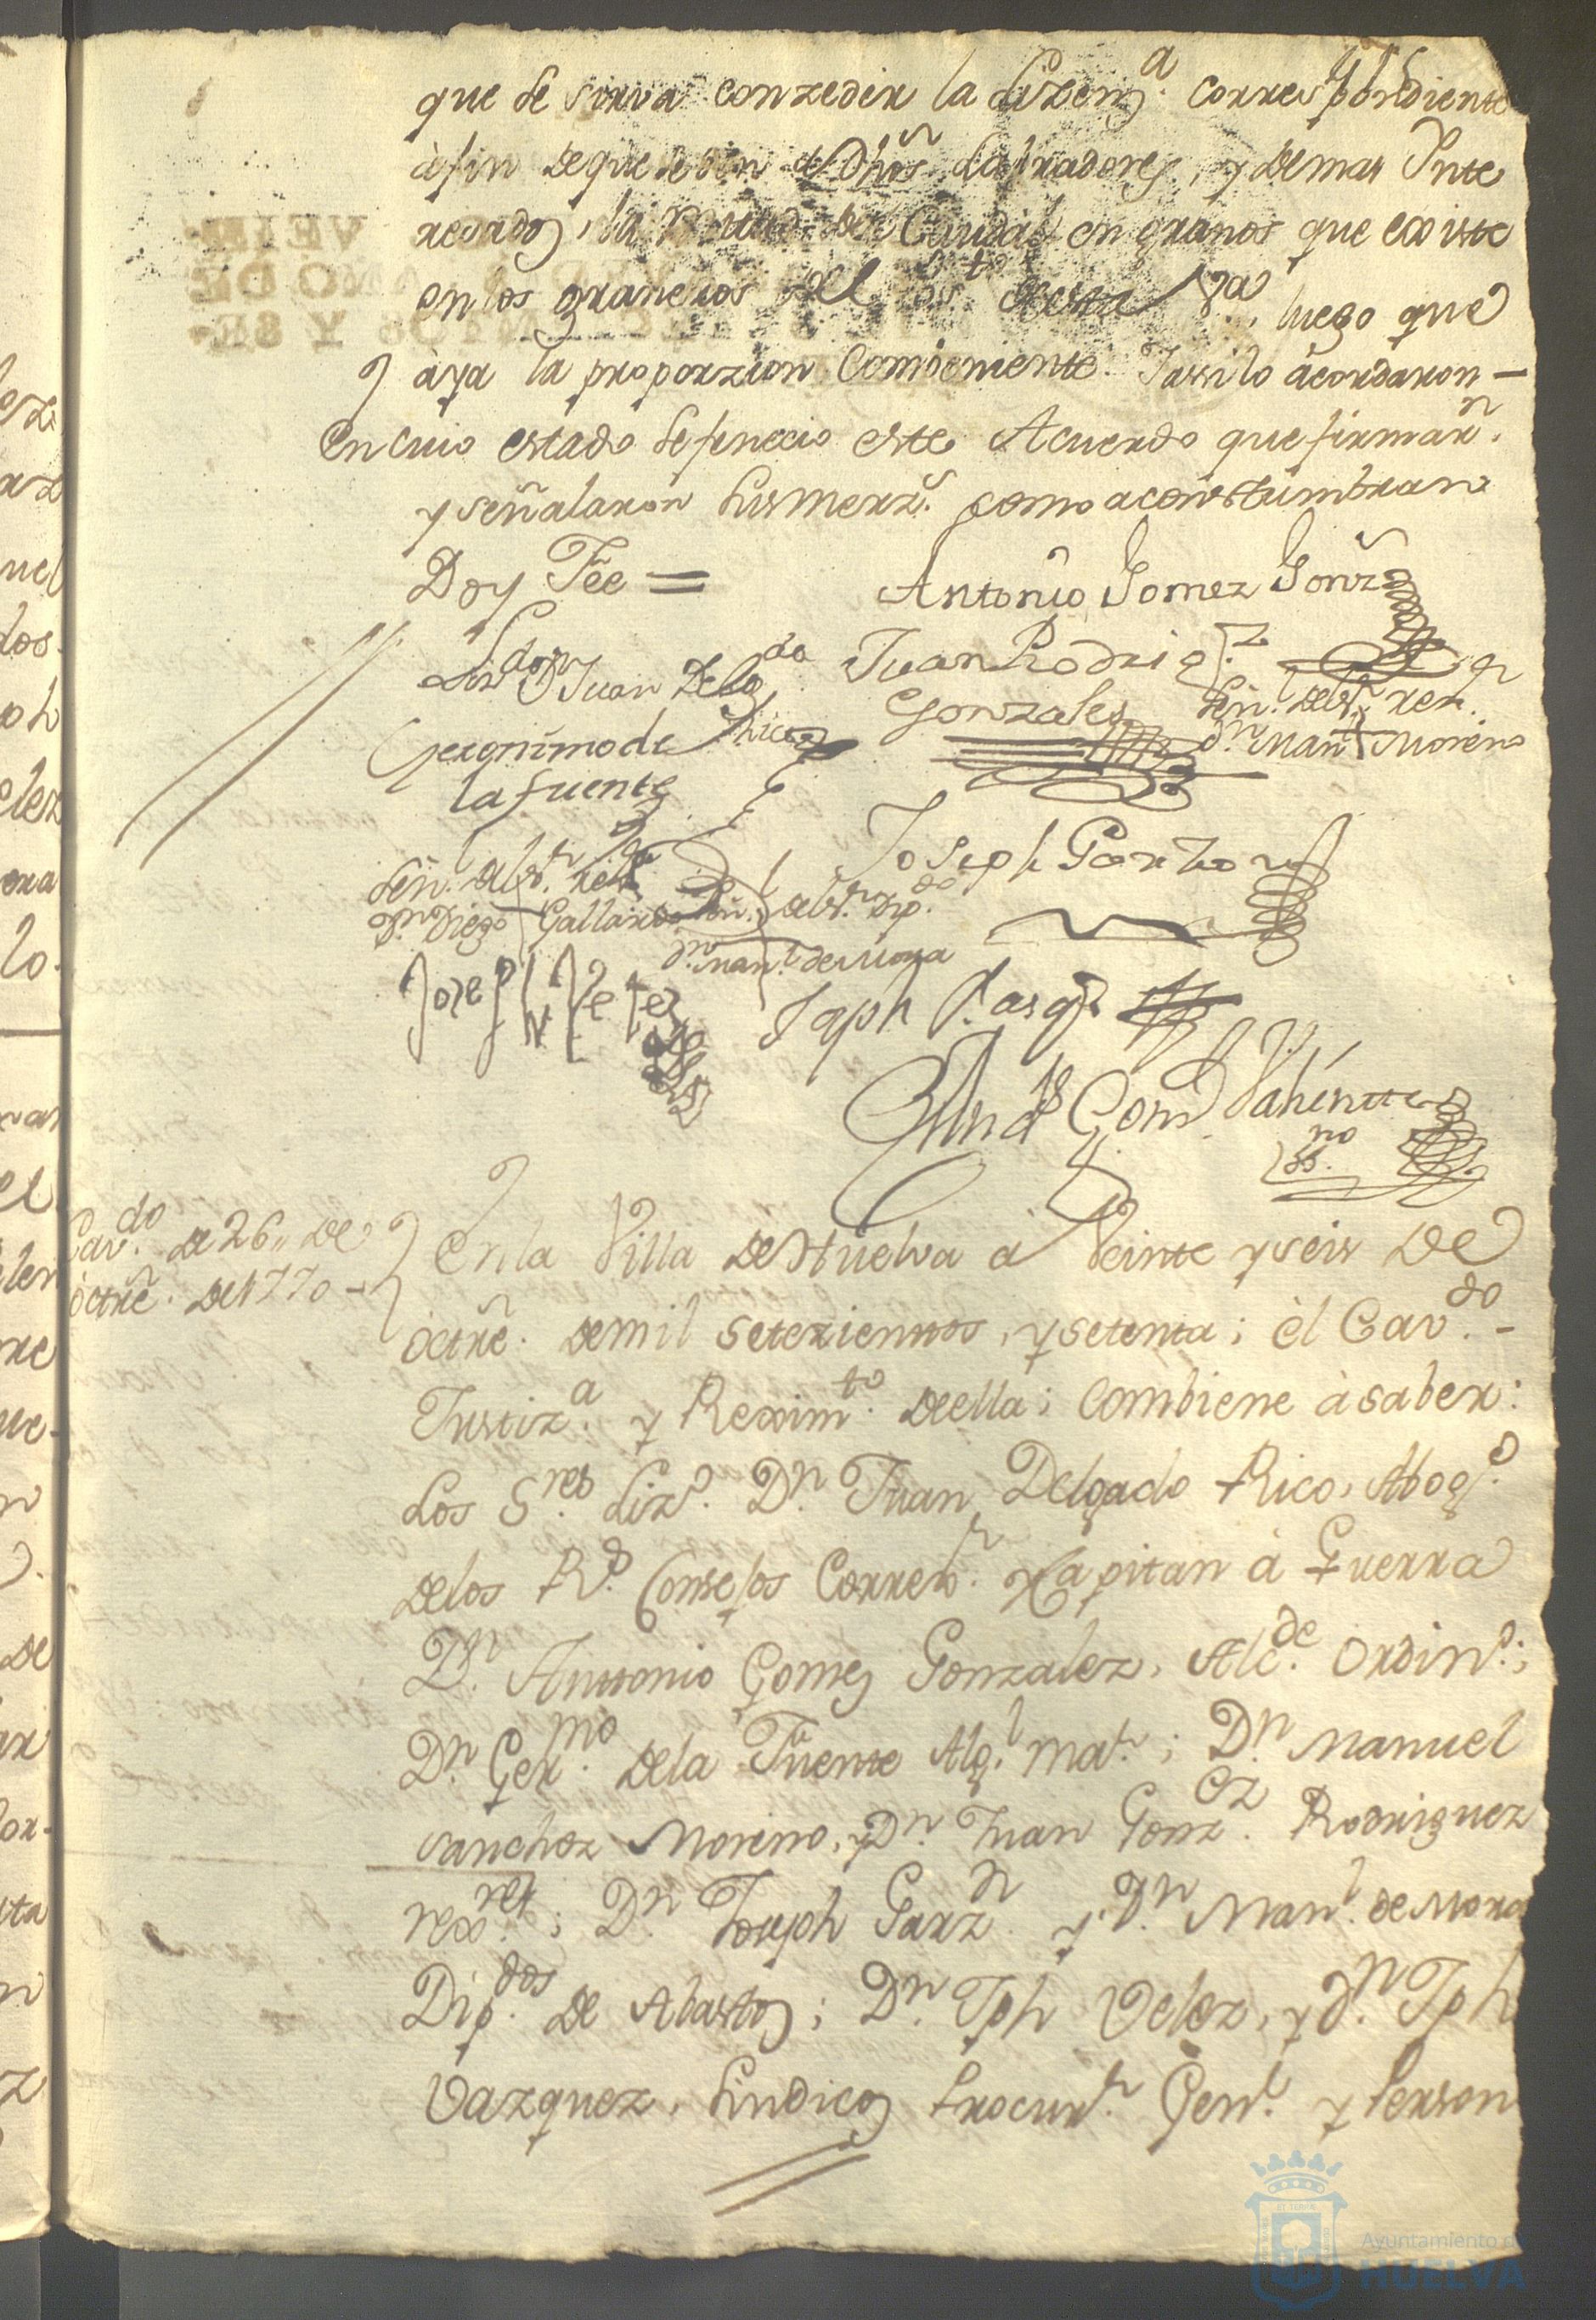 que se sirva conzeder la Lizenz.ª correspondiente
à fin de que se den a Dhos Labradores, y demas Ynte
resados, la mitad del Caudal en granos que existe
en los graneros del Pos.to desta V.ª, luego que
àya la proporzion Combeniente. Y assi lo àcordaron —
En cuio estado se fenecio este Acuerdo que firmar.n
y señalaron sus merz.s como acostumbran
Doy Fee =
Antonio Gomez Gonz
Liz.do D.n Juan Delg.do
Rico
Juan Rodrig.z
Gonzales
Señ.l del S.r rex.r
D.n Man.l Moreno
Geronimo de
la fuente
Joseph Garzon
Señ.l del S.r rex.r
D.n Diego Gallardo
Señ.l del S.r Dip.do
D.n Man.l de Mora
Joseph Velez
Jqph Vasq.z
Gom Valiente
ss.no
Cav.do de 26,, de
octñe. de 1770 —
En la Villa de Huelva à Veinte y seis de
òctñe. de mil setezientos, y setenta; èl Cav.do —
Justiz.a y Rexim.to de ella; Combiene à saber:
Los S.res Liz.do D.n Juan Delgado Rico, Abog.do
de los R.s Consejos Correx.r y Capitan à Guerra
D.n Antonio Gomez Gonzalez, Alc.de Ordin.o;
D.n Ger.mo de la Fuente Alg.l ma.r; D.n Manuel
Sanchez Moreno, y D.n Juan Gonz.ez Rodriguez
rex.res; D.n Joseph Garz.n y D.n Man.l de Mora
Dip.dos de Abastos; D.n Jph Velez, y D.n Jph
Vazquez, Sindicos Procur.r Gen.l y Person
Ayuntamiento d
HUELVA